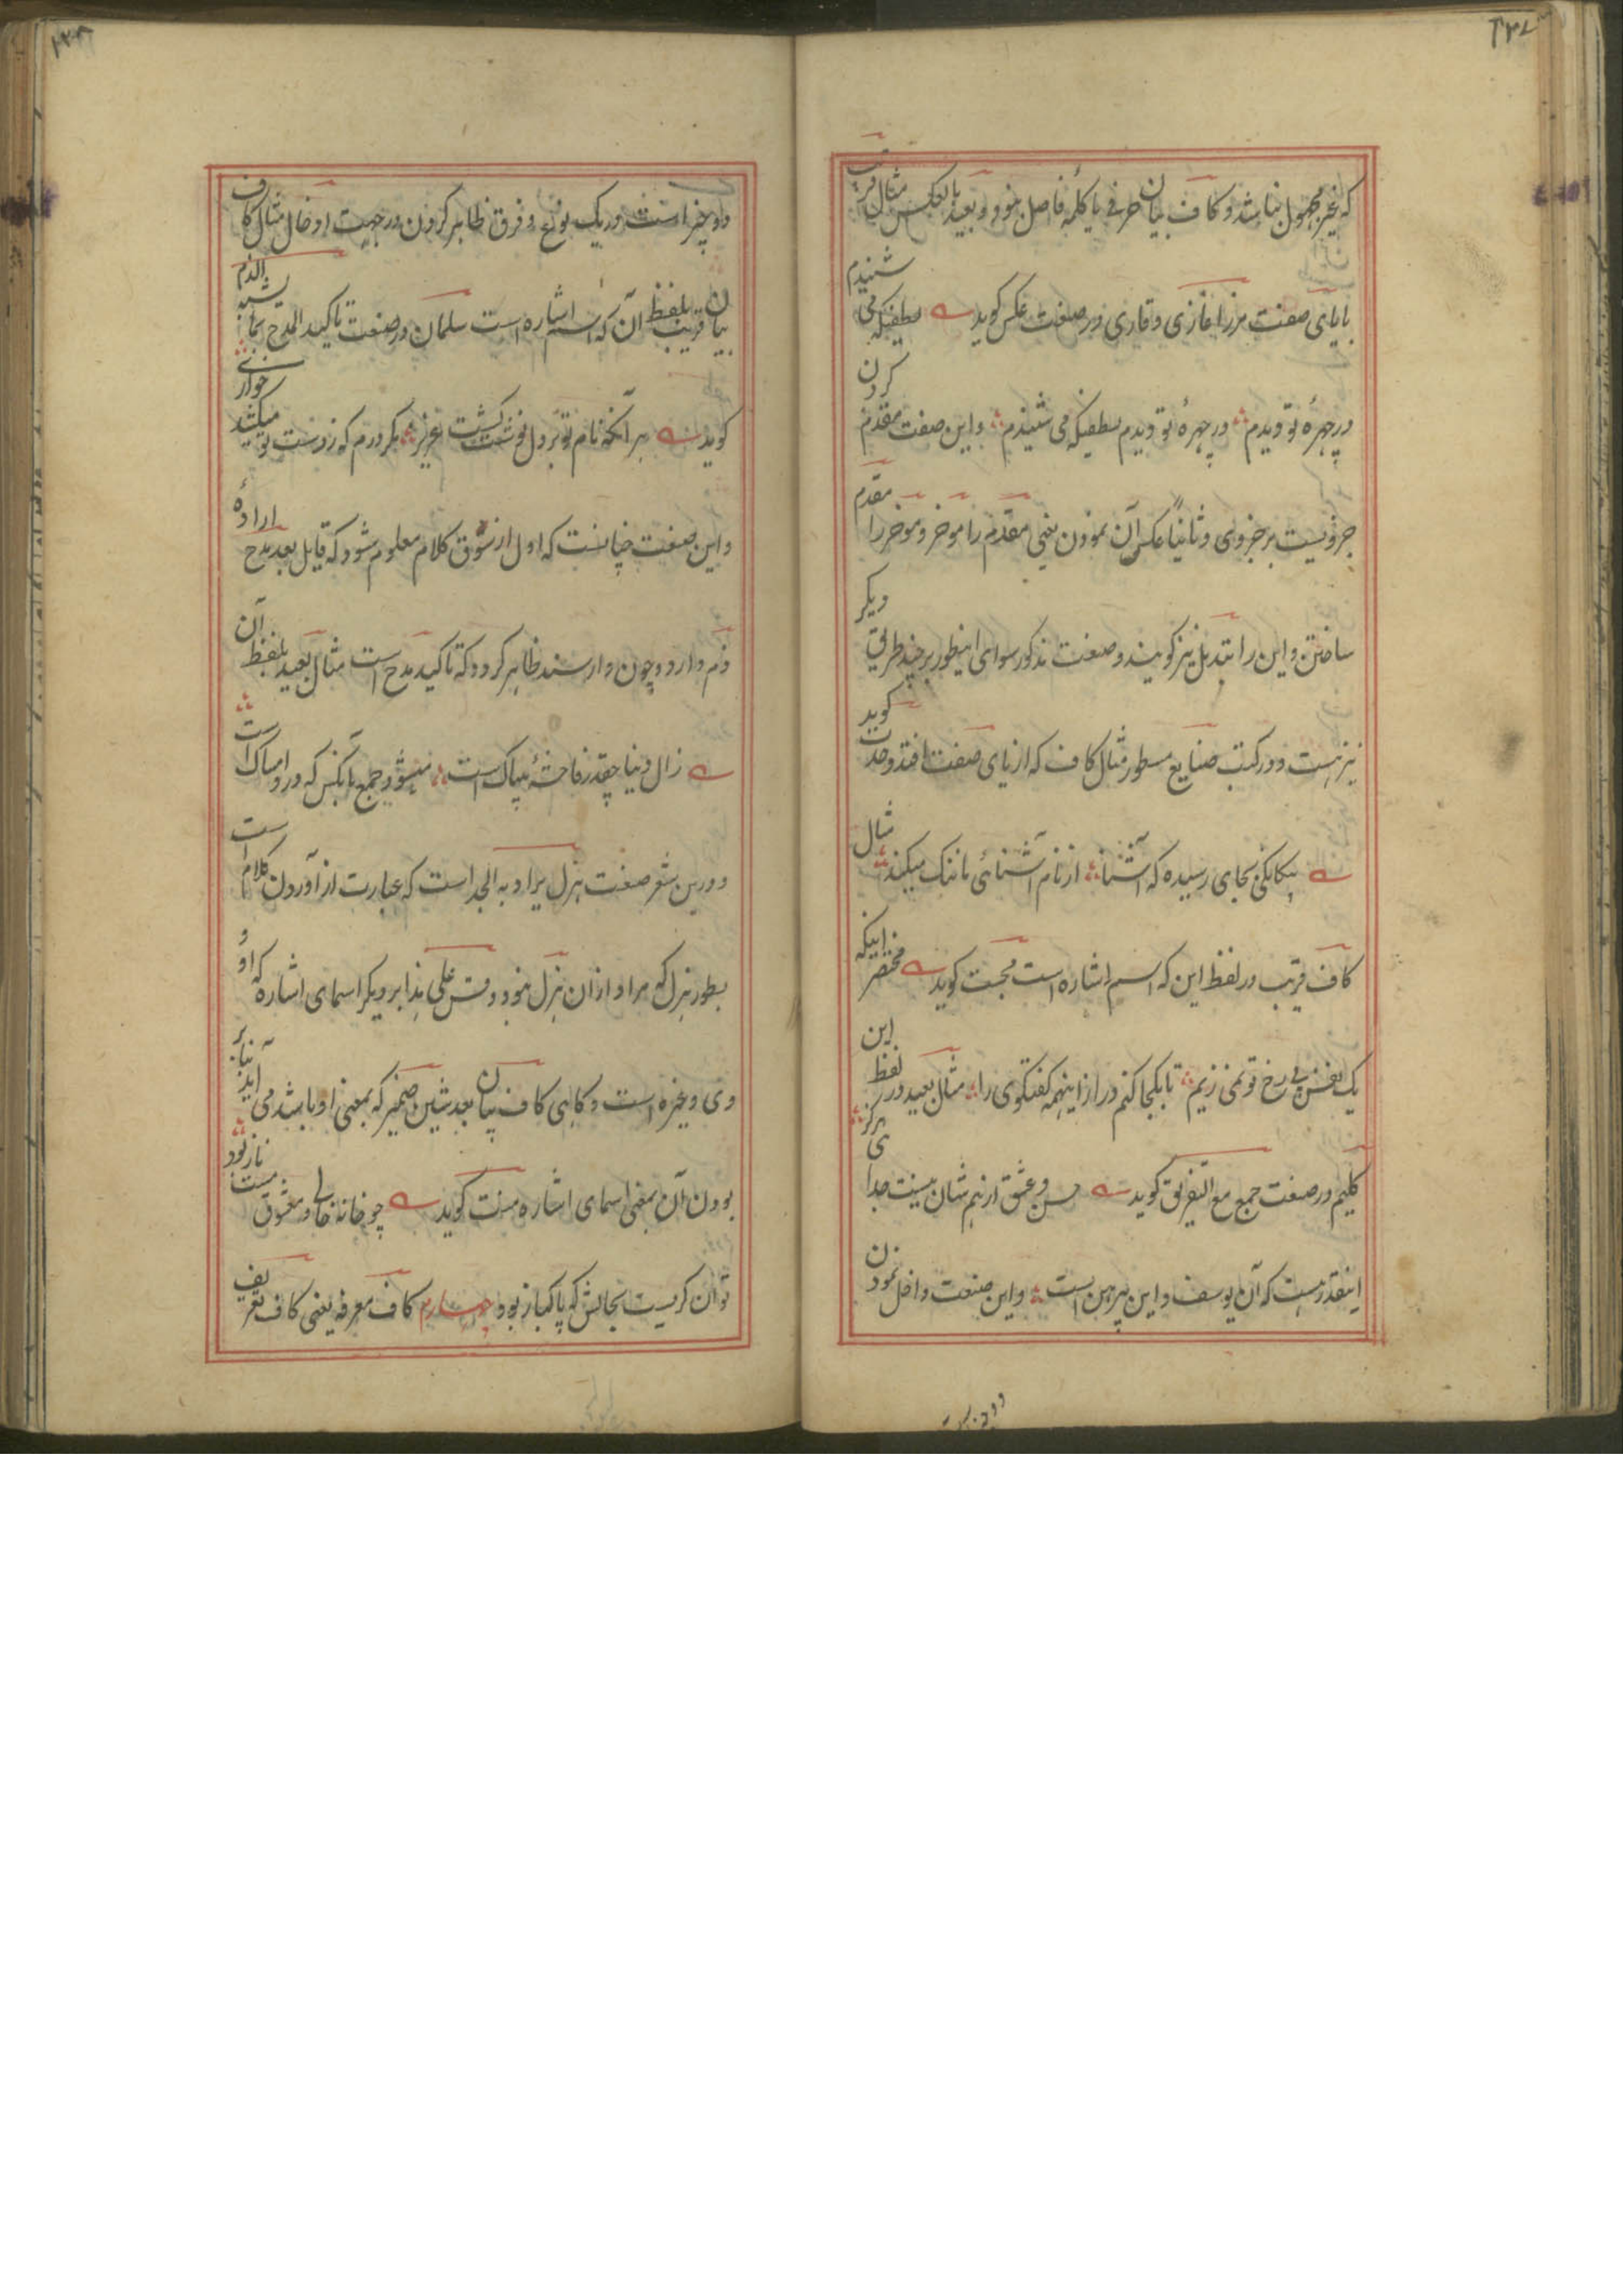 ۱۳۷
که غیر مجهول نباشد و کاف بیان حرفی یا کلمه فاصل نبود و بعید بالعکس مثال قریب
بایای صفت مرزا غازی وقاری در صنعت عکس گوید لطفیکه می شنیدم
در چهرهٔ تو دیدم در چهرهٔ تو دیدم لطفیکه می شنیدم واین صفت مقدم کردن
جزویست بر جزوی و ثانیاً عکس آن نمودن یعنی مقدم را موخر و موخر را مقدم
ساختن و این را تبدیل نیز گویند و صنعت مذکور سوای اینطور بر چند طریق دیگر
نیز هست و در کتب صنایع مسطور مثال کاف که از یای صفت افتد وحدت گوید
بیگانگی بجای رسیده که آشنا از نام آشنائی ما ننگ میکند مثال
کاف قریب در لفظ این که اسم اشاره است محبت گوید مختصر اینکه
یک نفس بی رخ تو نمی زیم تا بکجا کنم دراز اینهمه گفتگوی را مثال بعید در لفظ این
کلیم در صنعت جمع مع التفریق گوید حسن و عشق از هم شان نیست جدا هرگز
اینقدر هست که آن یوسف و این پیرهن است و این صنعت داخل نمودن
۱۳۸
دو چیز است در یک نوع و فرق ظاهر کردن در جهت ادخال مثال کاف
بیان قریب بلفظ آن که اسم اشاره است سلمان در صنعت تاکید المدح بما یشبه الذم
گوید هر آنکه نام تو بر دل نوشت گشت عزیز مگر درم که ز دست تو میکشد خواری
و این صنعت چنانست که اول از سوق کلام معلوم شود که قایل بعد مدح ارادهٔ
ذم دارد و چون وارسند ظاهر گردد که تاکید مدح است مثال بعید بلفظ آن
زال دنیا چقدر فاحشهٔ بیباک است میشود جمع بآنکس که درو امساک است
و درین شعر صنعت هزل یراد به الجد است که عبارت از آوردن کلام است
بطور هزل که مراد ازان هزل نبود و قس علی هذا بر دیگر اسمای اشاره که او و
وی و غیره است و گاهی کاف بیان بعد شین ضمیر که بمعنی او باشد می آید بنابر
بودن آن بمعنی اسمای اشاره منت گوید چو خانه خالی و معشوق مست ناز بود
توان گریست بحالش که پاکباز بود چهارم کاف معرفه یعنی کاف تعریف